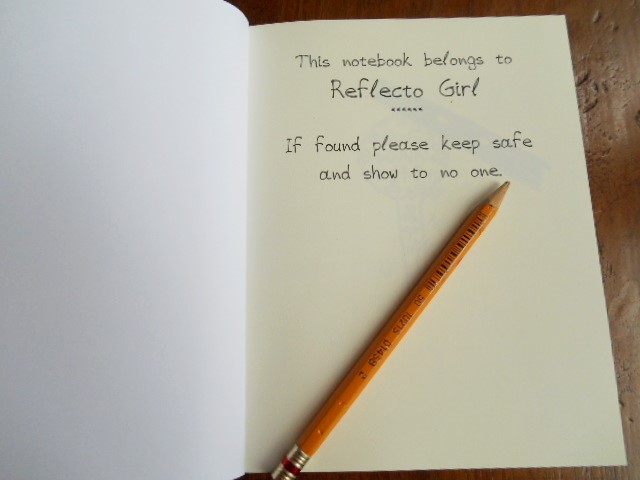 This notebook belongs to
Reflecto Girl
If found please keep safe
and show to no one.